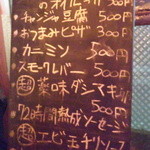 のオイル 500円
チャンジャ豆腐 500円
おつまみピザ 300円
カニミソ 500円
スモークレバー 500円
超 薬味ダシスキ
72時間熟成ソーセージ
超 エビモチ